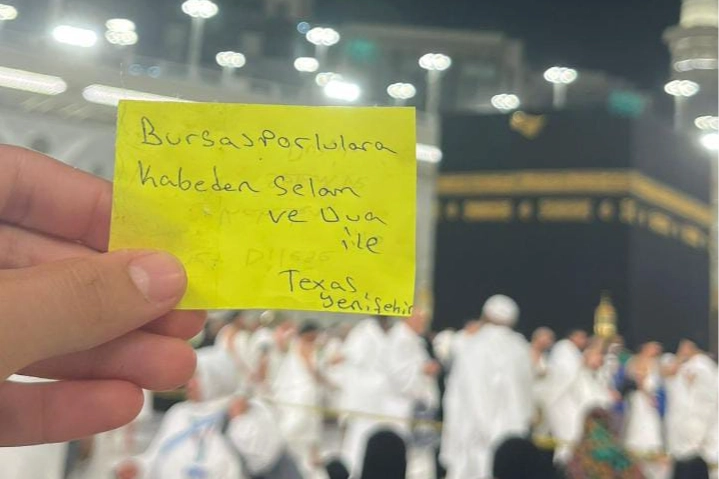 Bursasporlulara
Kabeden Selam
ve Dua
ile
Texas
Yenişehir